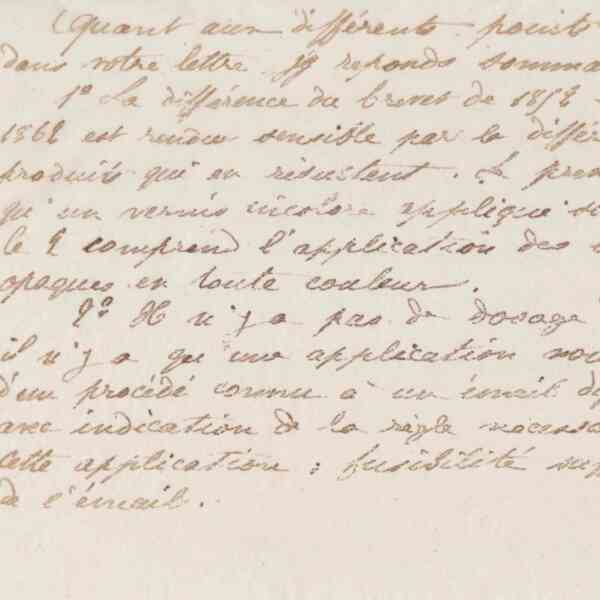 Quant aux différents points
dans votre lettre j'y reponds somma
1º La différence du brevet de 1852
1862 est rendue sensible par la différ
produits qui en résultent. Le prem
qu'un vernis incolore appliqué s
le 2 comprend l'application des
opaques en toute couleur.
2º Il n'y a pas de dosage
il n'y a qu'une application nou
d'un procédé connu à un émail
avec indication de la règle necessa
cette application : fusibilité
de l'émail.